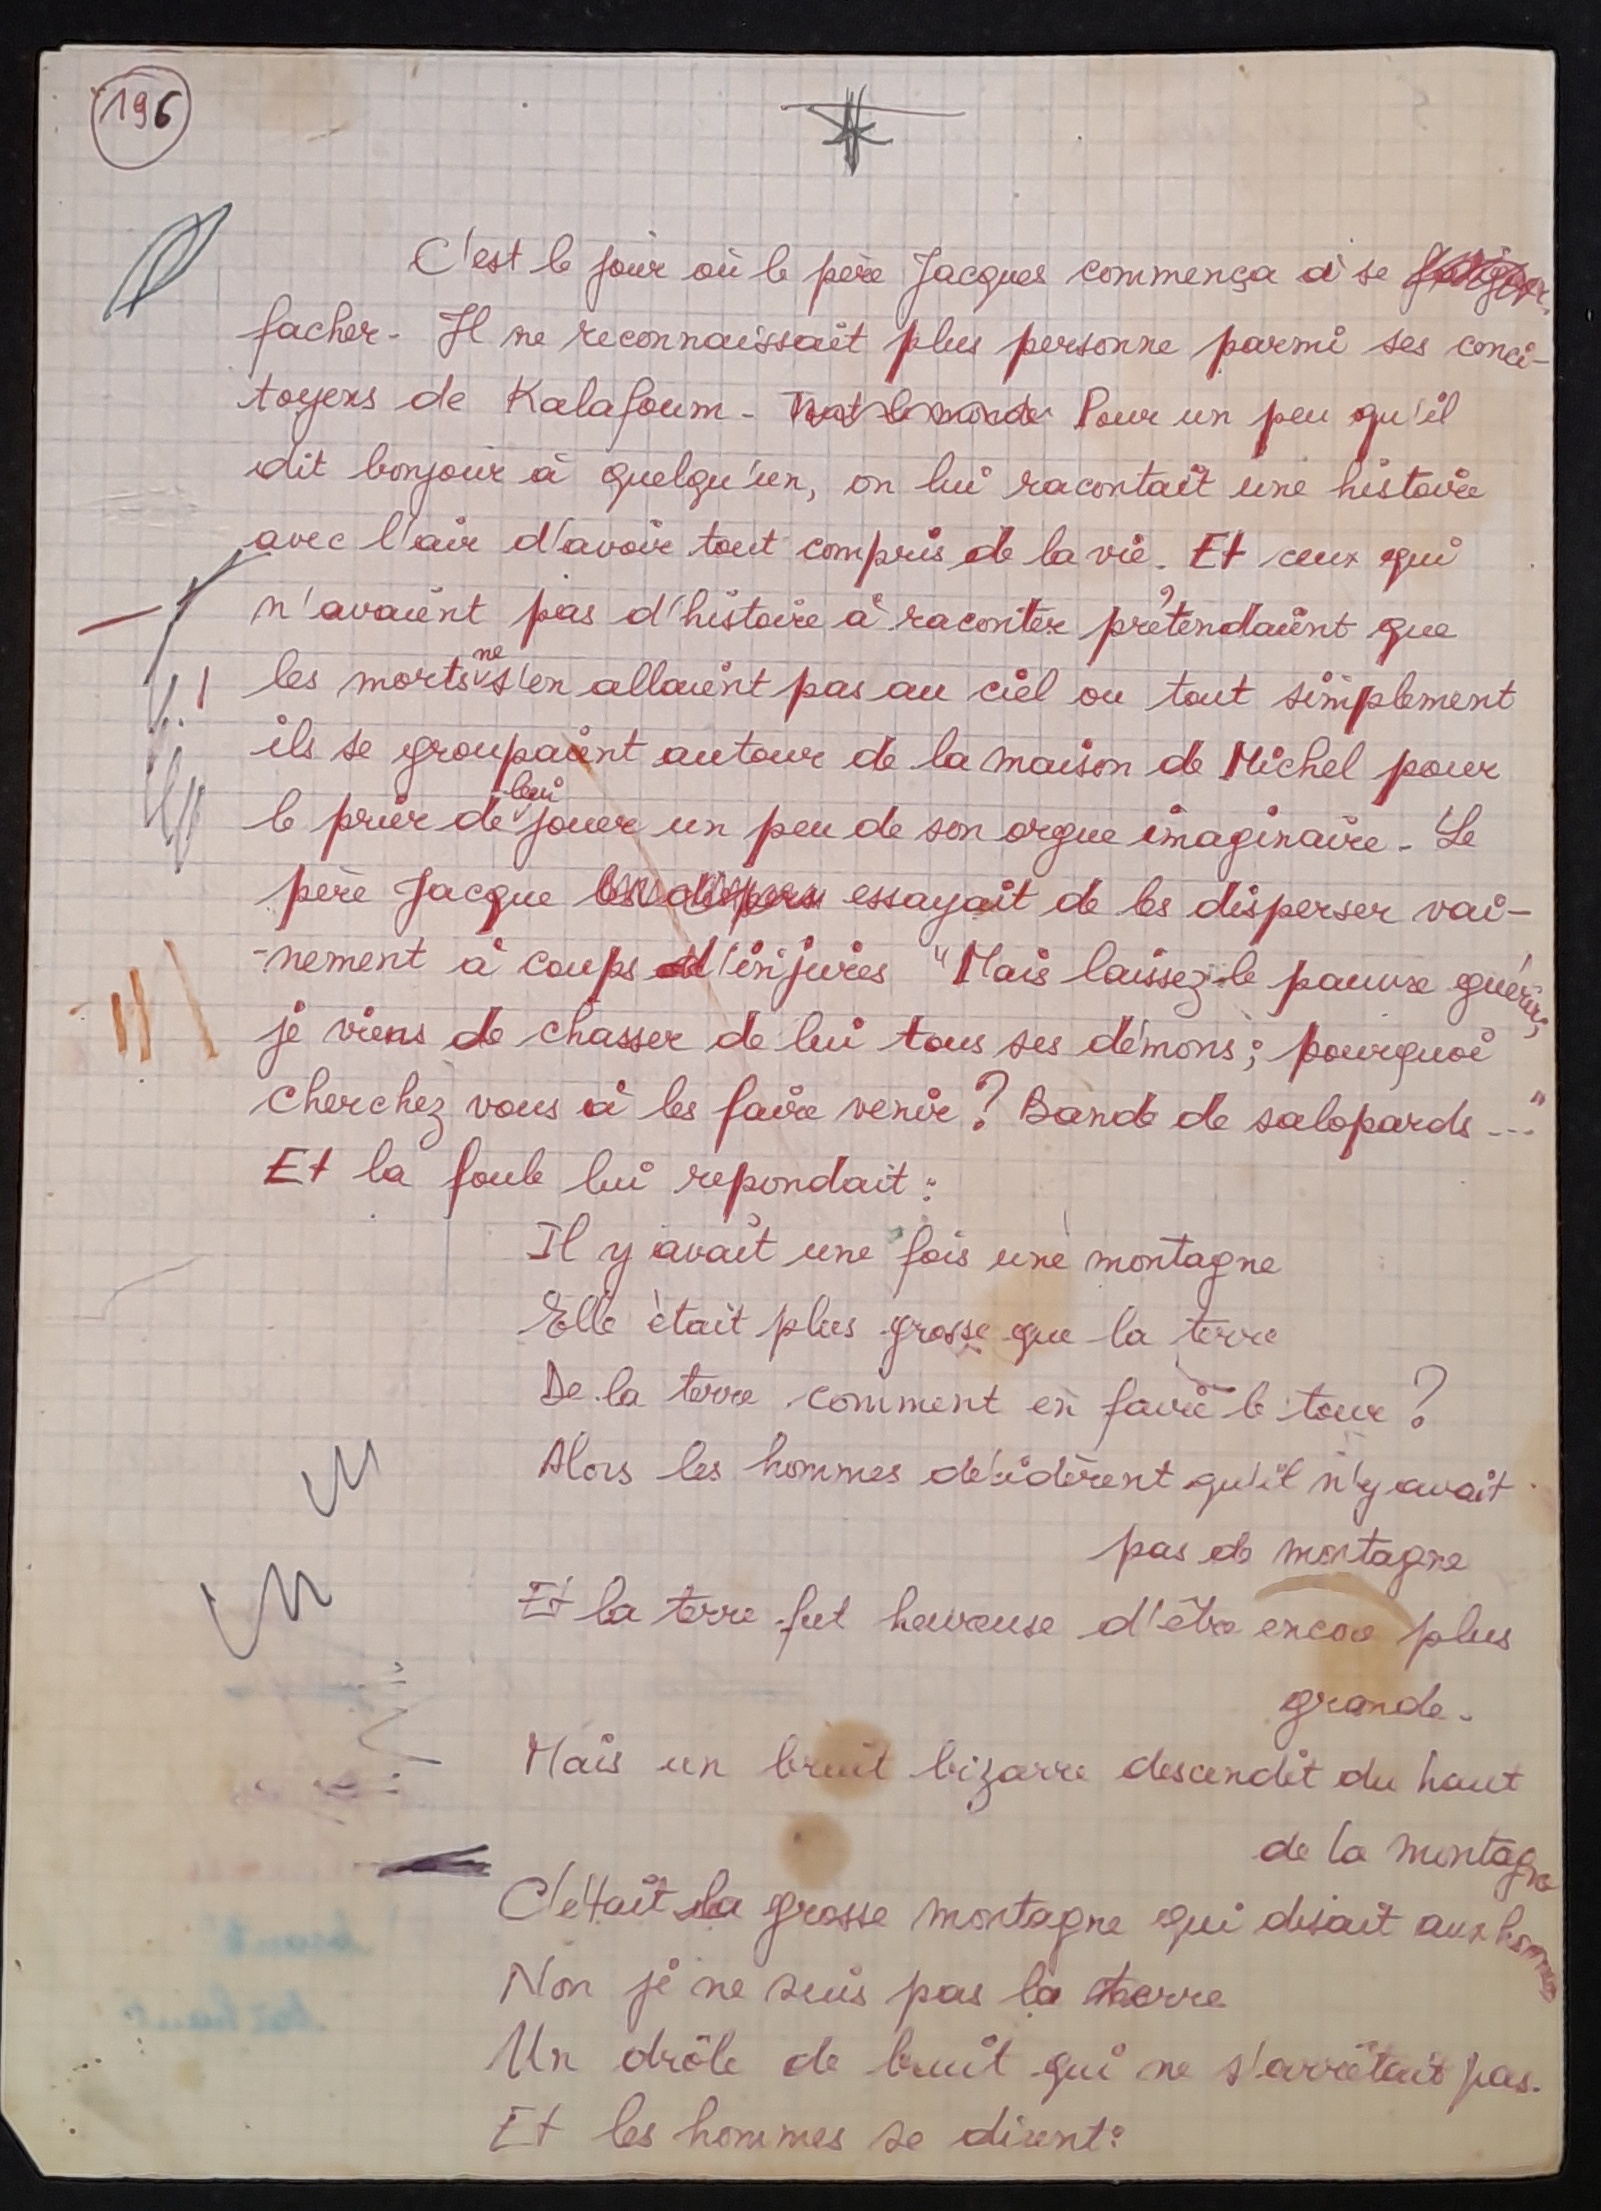 196
C'est le jour où le père Jacques commença à se
facher - Il ne reconnaissait plus personne parmi ses conci-
toyens de Kalafoum - Tout le monde Pour un peu qu'il
dit bonjour à quelqu'un, on lui racontait une histoire
avec l'air d'avoir tout compris de la vie. Et ceux qui
n'avaient pas d'histoire à raconter prétendaient que
les morts ne s'en allaient pas au ciel ou tout simplement
ils se groupaient autour de la maison de Michel pour
le prier de lui jouer un peu de son orgue imaginaire - Le
père Jacque essayait de les disperser vai-
-nement à coups d'injures "Mais laissez-le pauvre guérir,
je viens de chasser de lui tous ses démons; pourquoi
cherchez vous à les faire venir? Bande de salopards ..."
Et la foule lui repondait :
Il y avait une fois une montagne
Elle était plus grosse que la terre
De la terre comment en faire le tour ?
Alors les hommes décidèrent qu'il n'y avait
pas de montagne
Et la terre fut heureuse d'être encore plus
grande.
Mais un bruit bizarre descendit du haut
de la montagne
C'était la grosse montagne qui disait aux hommes
Non je ne suis pas la terre
Un drôle de bruit qui ne s'arrêtait pas.
Et les hommes se dirent: